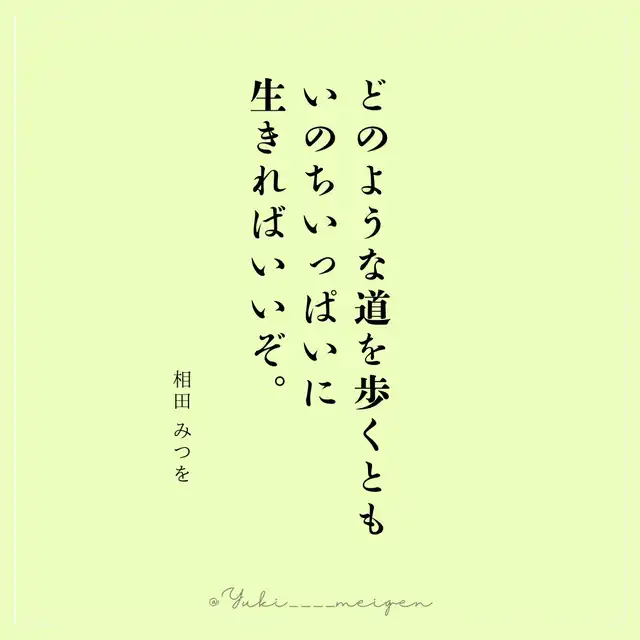 どのような道を歩くとも
いのちいっぱいに
生きればいいぞ。
相田 みつを
@Yuki____meigen